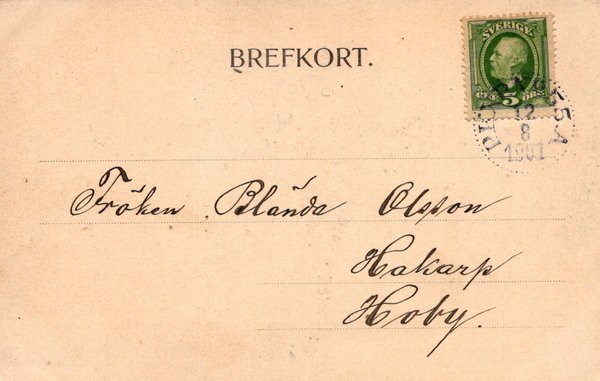 BREFKORT.
SVERIGE
5 ÖRE
12
8
1901
Fröken Blända Olsson
Hakarp
Hoby.